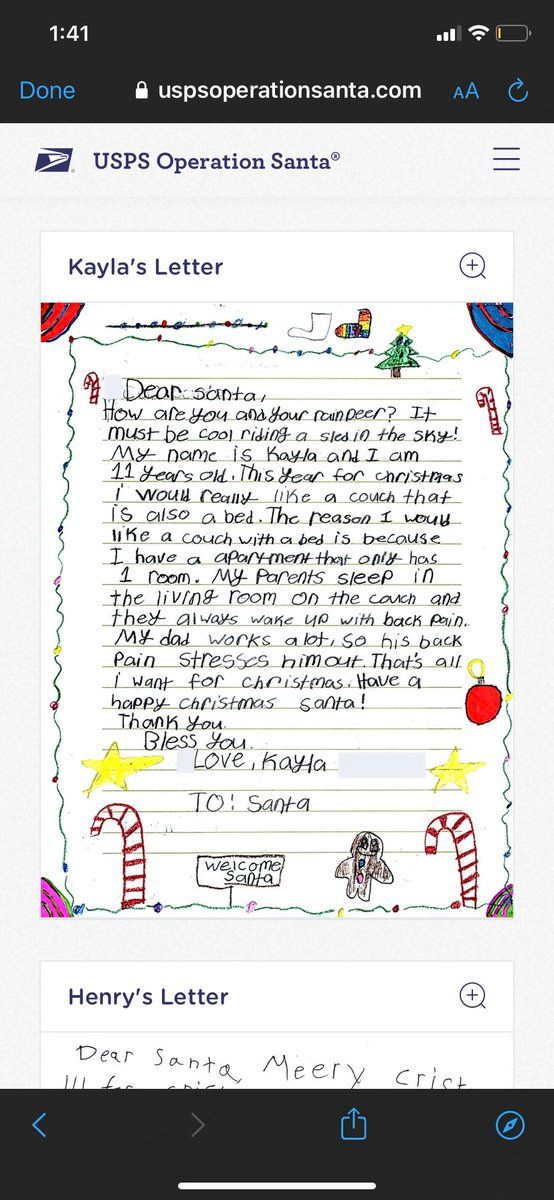 1:41
Done
uspsoperationsanta.com
AA
USPS Operation Santa®
Kayla's Letter
Dear santa,
How are you and your rainDeer? It
must be cool riding a sled in the sky!
My name is Kayla and I am
11 years old. This year for christmas
i would really like a couch that
is also a bed. The reason I would
like a couch with a bed is because
I have a apartment that only has
1 room. My Parents sleep in
the living room on the couch and
they always wake up with back pain.
My dad works alot, so his back
Pain stresses him out. That's all
i want for christmas. Have a
happy christmas santa!
Thank you.
Bless you.
Love, Kayla
TO: Santa
welcome
santa
Henry's Letter
Dear Santa Meery crist